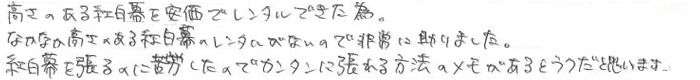 高さのある紅白幕を安価でレンタルできた為。
なかなか高さのある紅白幕のレンタルがないので非常に助りました。
紅白幕を張るのに苦労したのでカンタンに張れる方法のメモがあるとうつだと思います。